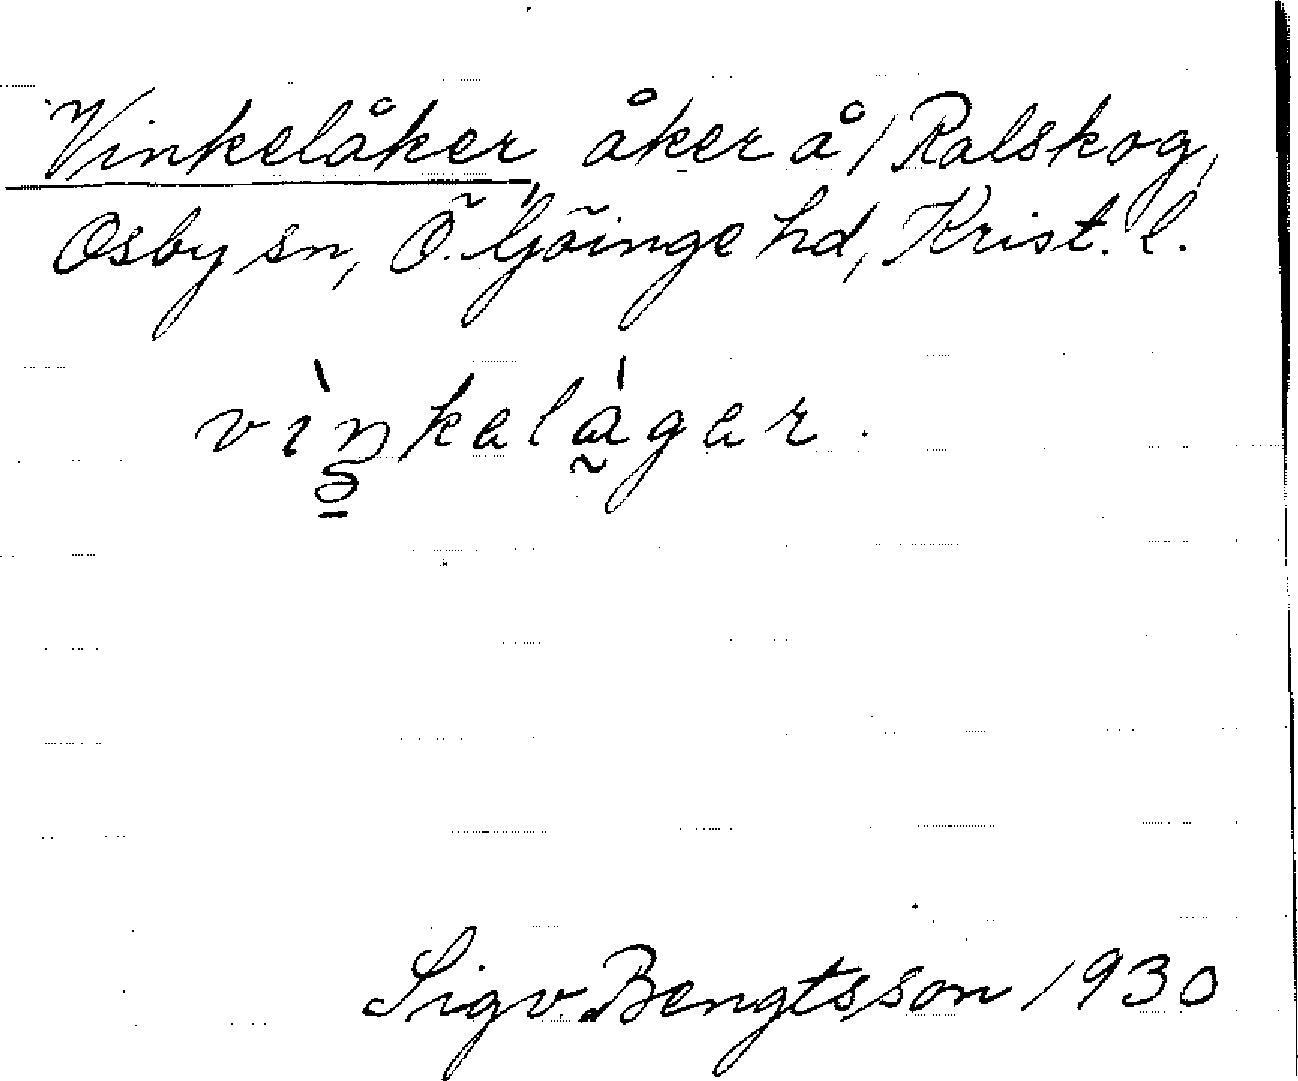 Vinkelåker åker å 1 Ralskog,
Osby sn, Ö. Göinge hd, Krist. l.
vìŋkalágar.
Sigv. Bengtsson 1930